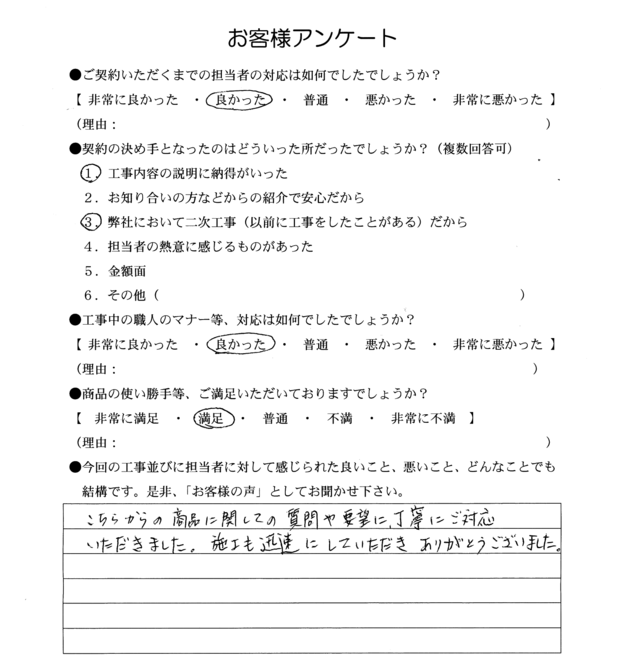 お客様アンケート
●ご契約いただくまでの担当者の対応は如何でしたでしょうか？
【 非常に良かった ・ 良かった ・ 普通 ・ 悪かった ・ 非常に悪かった 】
（理由： ）
●契約の決め手となったのはどういった所だったでしょうか？（複数回答可）
1．工事内容の説明に納得がいった
2．お知り合いの方などからの紹介で安心だから
3．弊社において二次工事（以前に工事をしたことがある）だから
4．担当者の熱意に感じるものがあった
5．金額面
6．その他（ ）
●工事中の職人のマナー等、対応は如何でしたでしょうか？
【 非常に良かった ・ 良かった ・ 普通 ・ 悪かった ・ 非常に悪かった 】
（理由： ）
●商品の使い勝手等、ご満足いただいておりますでしょうか？
【 非常に満足 ・ 満足 ・ 普通 ・ 不満 ・ 非常に不満 】
（理由： ）
●今回の工事並びに担当者に対して感じられた良いこと、悪いこと、どんなことでも
結構です。是非、「お客様の声」としてお聞かせ下さい。
こちらからの商品に関しての質問や要望に、丁寧にご対応
いただきました。施工も迅速にしていただきありがとうございました。